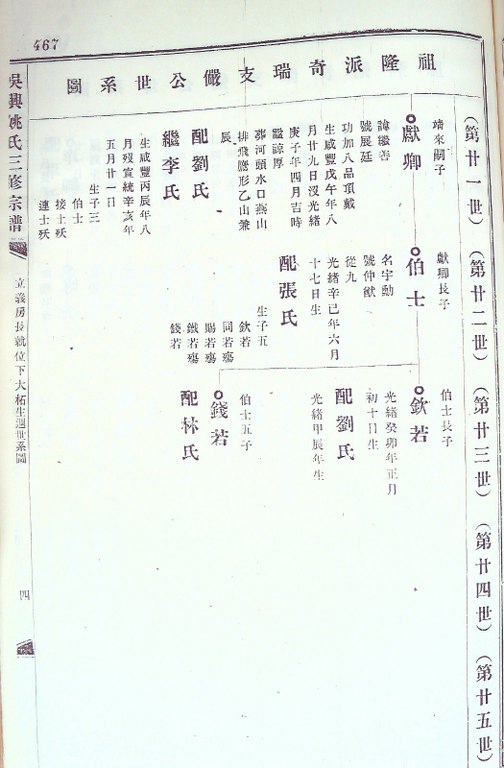 467
祖隆派奇瑞支儼公世系圖
(第廿一世)
(第廿二世)
(第廿三世)
(第廿四世)
(第廿五世)
靖來嗣子
獻卿
諱繼善
號展廷
功加八品頂戴
生咸豐戊午年八
月廿九日沒光緒
庚子年四月吉時
諡諒厚
葬河頭水口燕山
排飛鵞形乙山兼
辰
配劉氏
繼李氏
生咸豐丙辰年八
月歿宣統辛亥年
五月廿一日
生子三
伯士
接士殀
連士殀
獻卿長子
伯士
名宇勳
號仲猷
從九
光緒辛巳年六月
十七日生
配張氏
生子五
欽若
同若殤
賜若殤
鐵若殤
錢若
伯士長子
欽若
光緒癸卯年正月
初十日生
配劉氏
光緒甲辰年生
伯士五子
錢若
配林氏
吳興姚氏三修宗譜
立義房長就位下大柘生迴世系圖
四